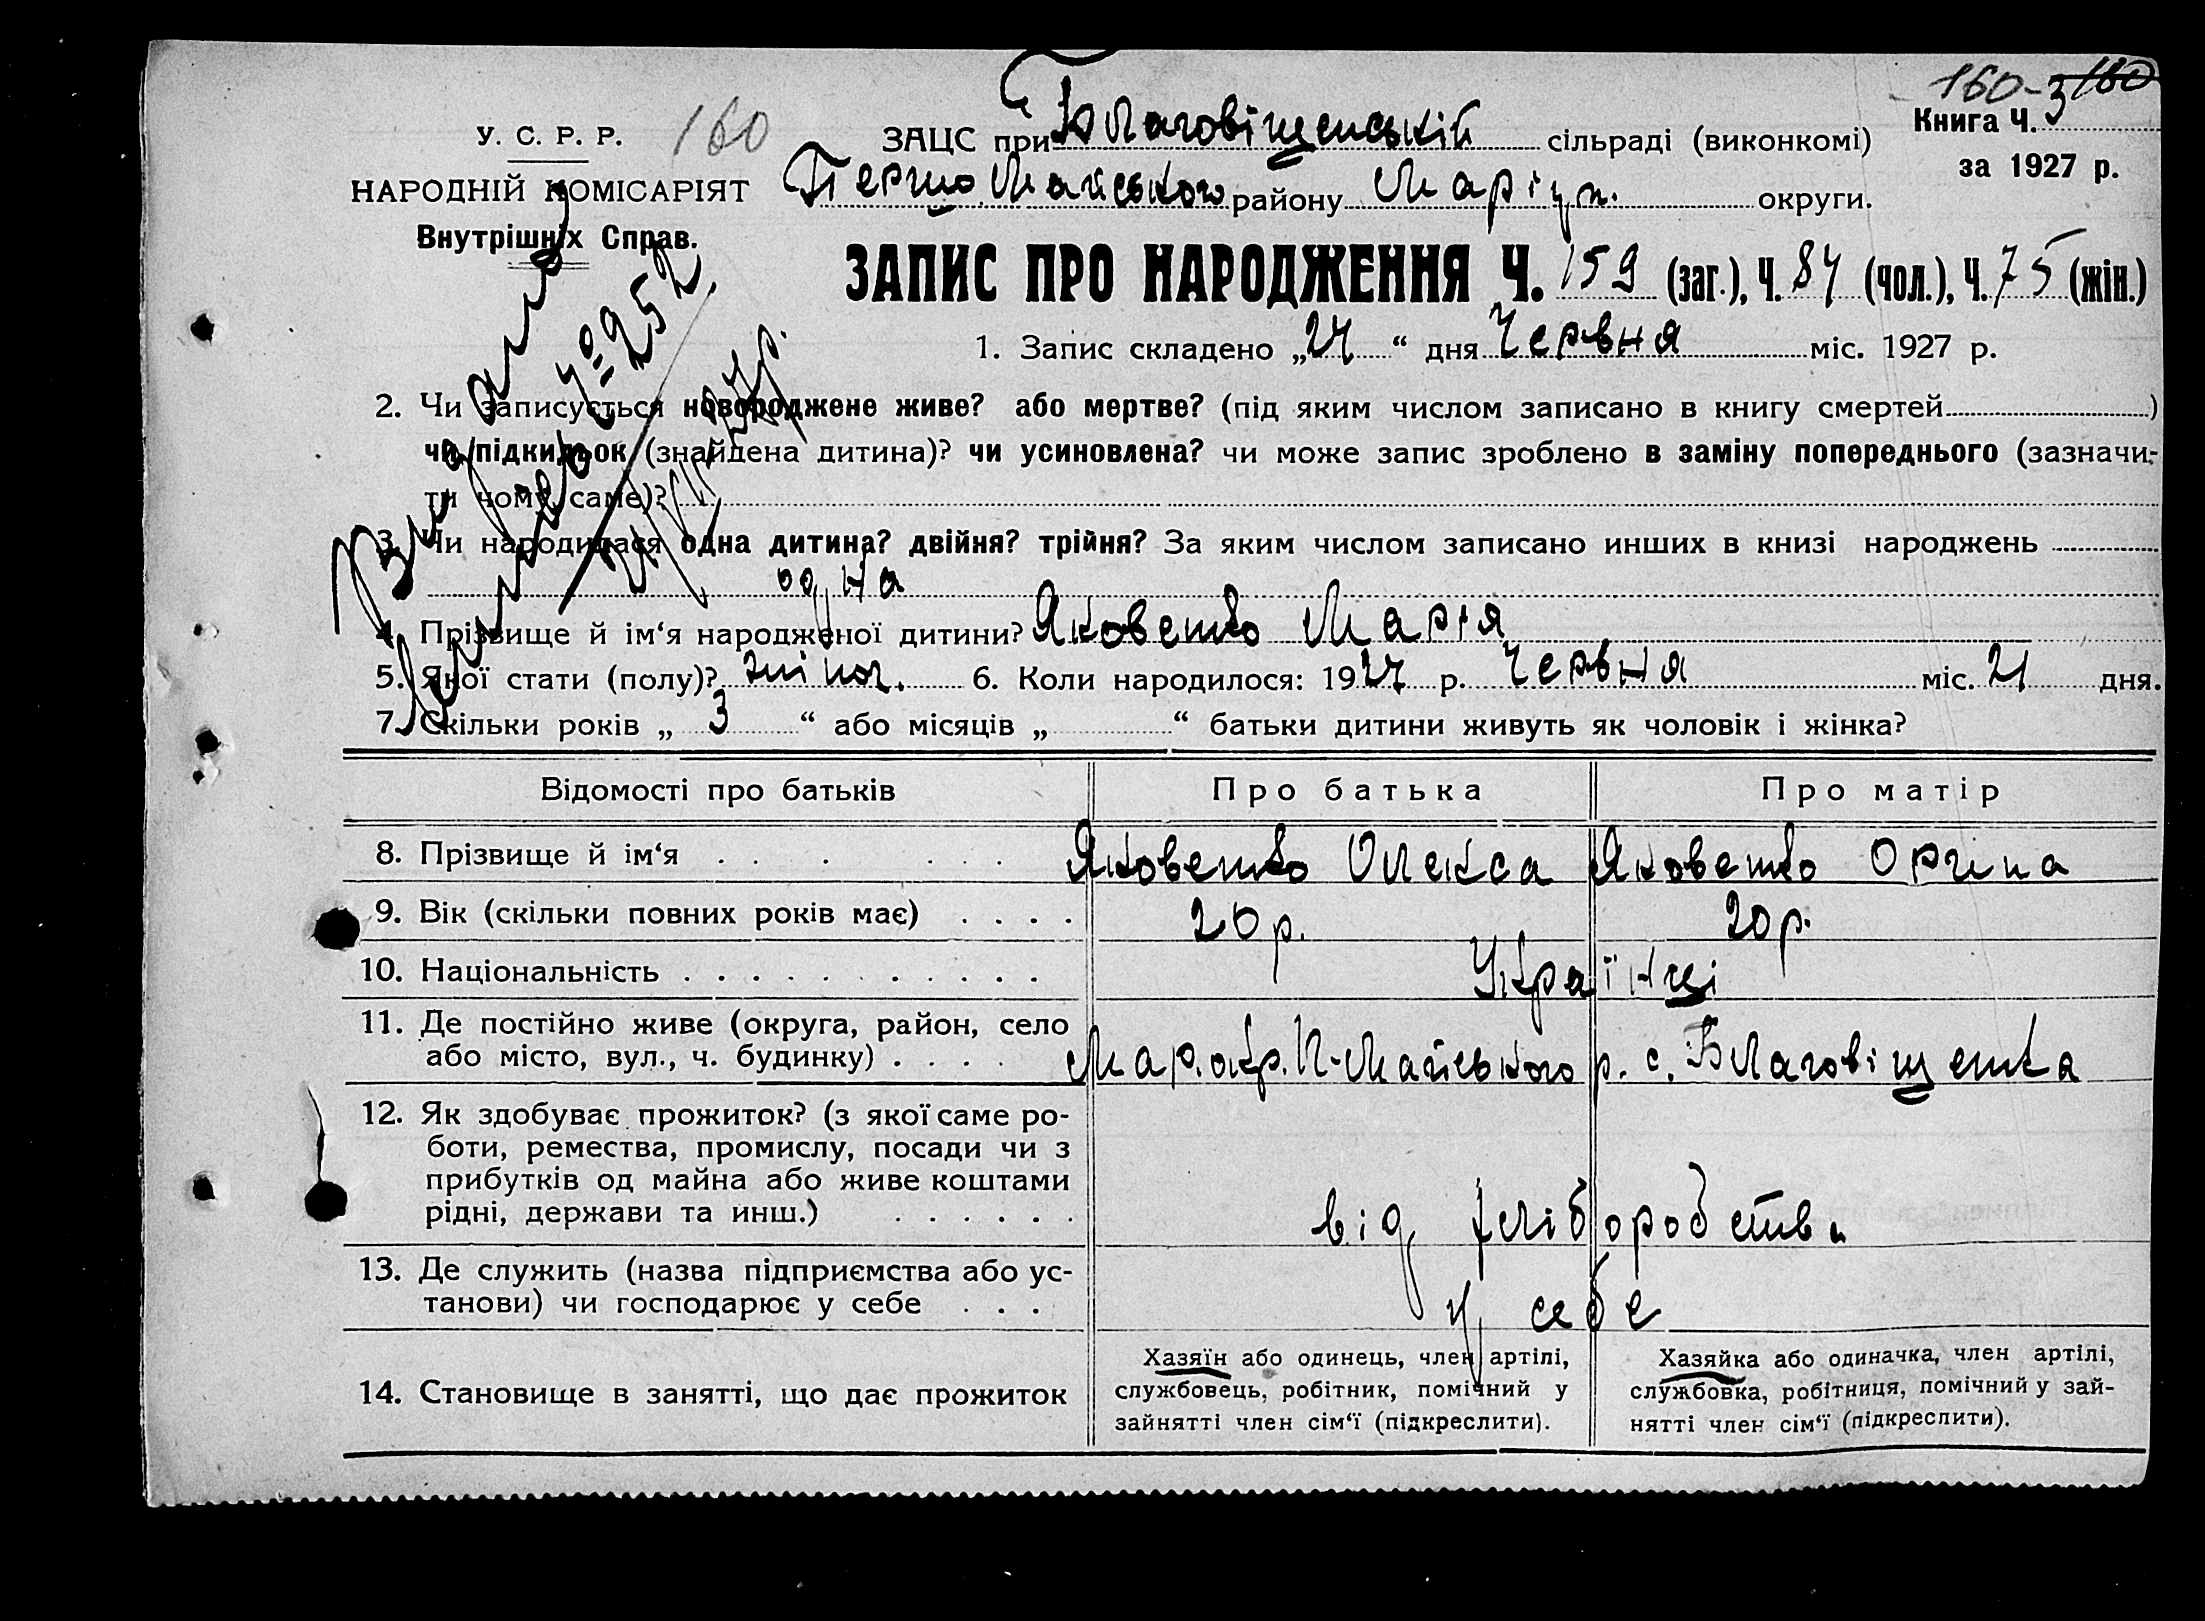 160-160
160
У. С. Р. Р.
НАРОДНІЙ КОМІСАРІЯТ
Внутрішніх Справ.
ЗАЦС при Благовіщенській сільраді (виконкомі)
Першо Майського району Маріуп. округи.
Книга Ч. 3
за 1927 р.
ЗАПИС ПРО НАРОДЖЕННЯ Ч. 159 (заг.), Ч. 84 (чол.), Ч. 75 (жін.)
1. Запис складено „24“ дня Червня міс. 1927 р.
2. Чи записується новороджене живе? або мертве? (під яким числом записано в книгу смертей)
чи підкидьок (знайдена дитина)? чи усиновлена? чи може запис зроблено в заміну попереднього (зазначи-
ти чому саме)?
3. Чи народилася одна дитина? двійня? трійня? За яким числом записано инших в книзі народжень
одна
4. Прізвище й ім‘я народженої дитини? Яковенко Марія
5. Якої стати (полу)? жіноч. 6. Коли народилося: 1927 р. Червня міс. 21 дня.
7. Скільки років „ 3 “ або місяців „ “ батьки дитини живуть як чоловік і жінка?
Відомості про батьків Про батька Про матір
8. Прізвище й ім‘я Яковенко Олекса Яковенко Орина
9. Вік (скільки повних років має) 20 р. 20 р.
10. Національність Українці
11. Де постійно живе (округа, район, село
або місто, вул., ч. будинку) Мар. окр. П-Майського р. с. Благовіщенка
12. Як здобуває прожиток? (з якої саме ро-
боти, ремества, промислу, посади чи з
прибутків од майна або живе коштами
рідні, держави та инш.) від хліборобства
13. Де служить (назва підприємства або ус-
танови) чи господарює у себе у себе
14. Становище в занятті, що дає прожиток
Хазяїн або одинець, член артілі,
службовець, робітник, помічний у
зайнятті член сім‘ї (підкреслити).
Хазяйка або одиначка, член артілі,
службовка, робітниця, помічний у зай-
нятті член сім‘ї (підкреслити).